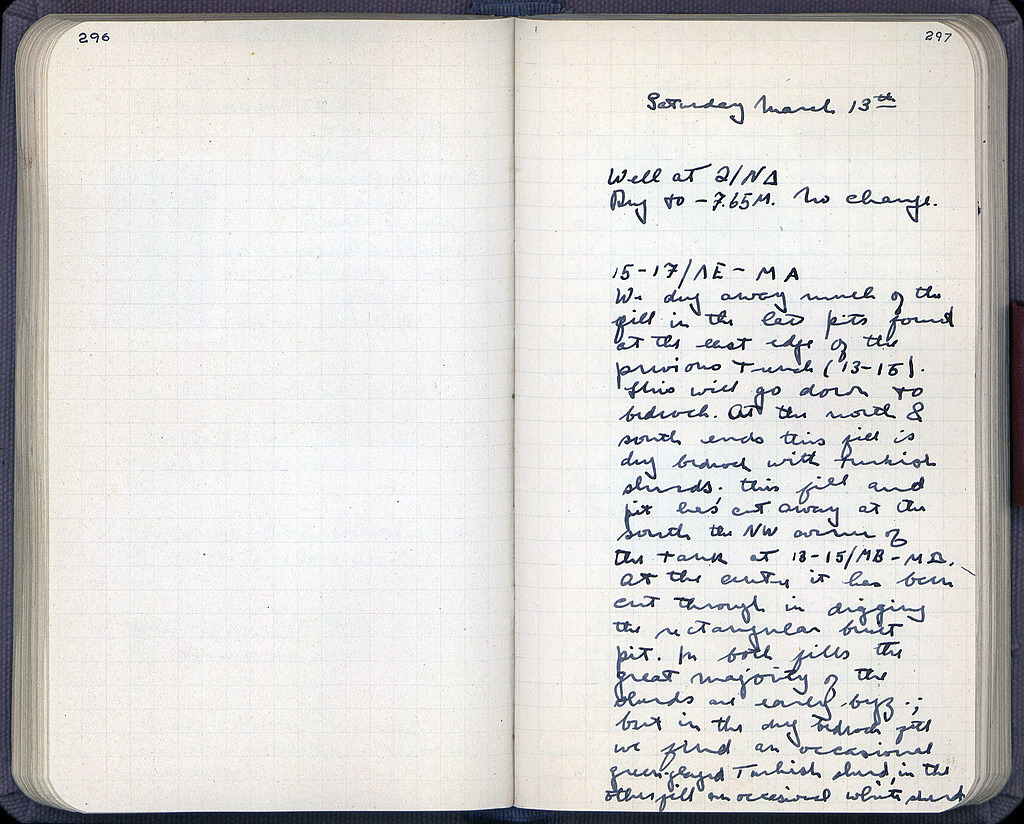 296
297
Saturday March 13th
Well at 2/ΝΔ
Dug to -7.65M. No change.
15-17/ΛΕ - ΜΑ
We dug away much of the
fill in the late pits found
at the east edge of the
previous trench (13-15).
This will go down to
bedrock. At the north &
south ends this fill is
dug bedrock with Turkish
sherds. This fill and
pit has cut away at the
south the NW corner of
the tank at 13-15/ΜΒ-ΜΔ.
At the centre it has been
cut through in digging
the rectangular built
pit. In both fills the
great majority of the
sherds are early byz.;
but in the dug bedrock fill
we find an occasional
green-glazed Turkish sherd, in the
other fill an occasional white sherd